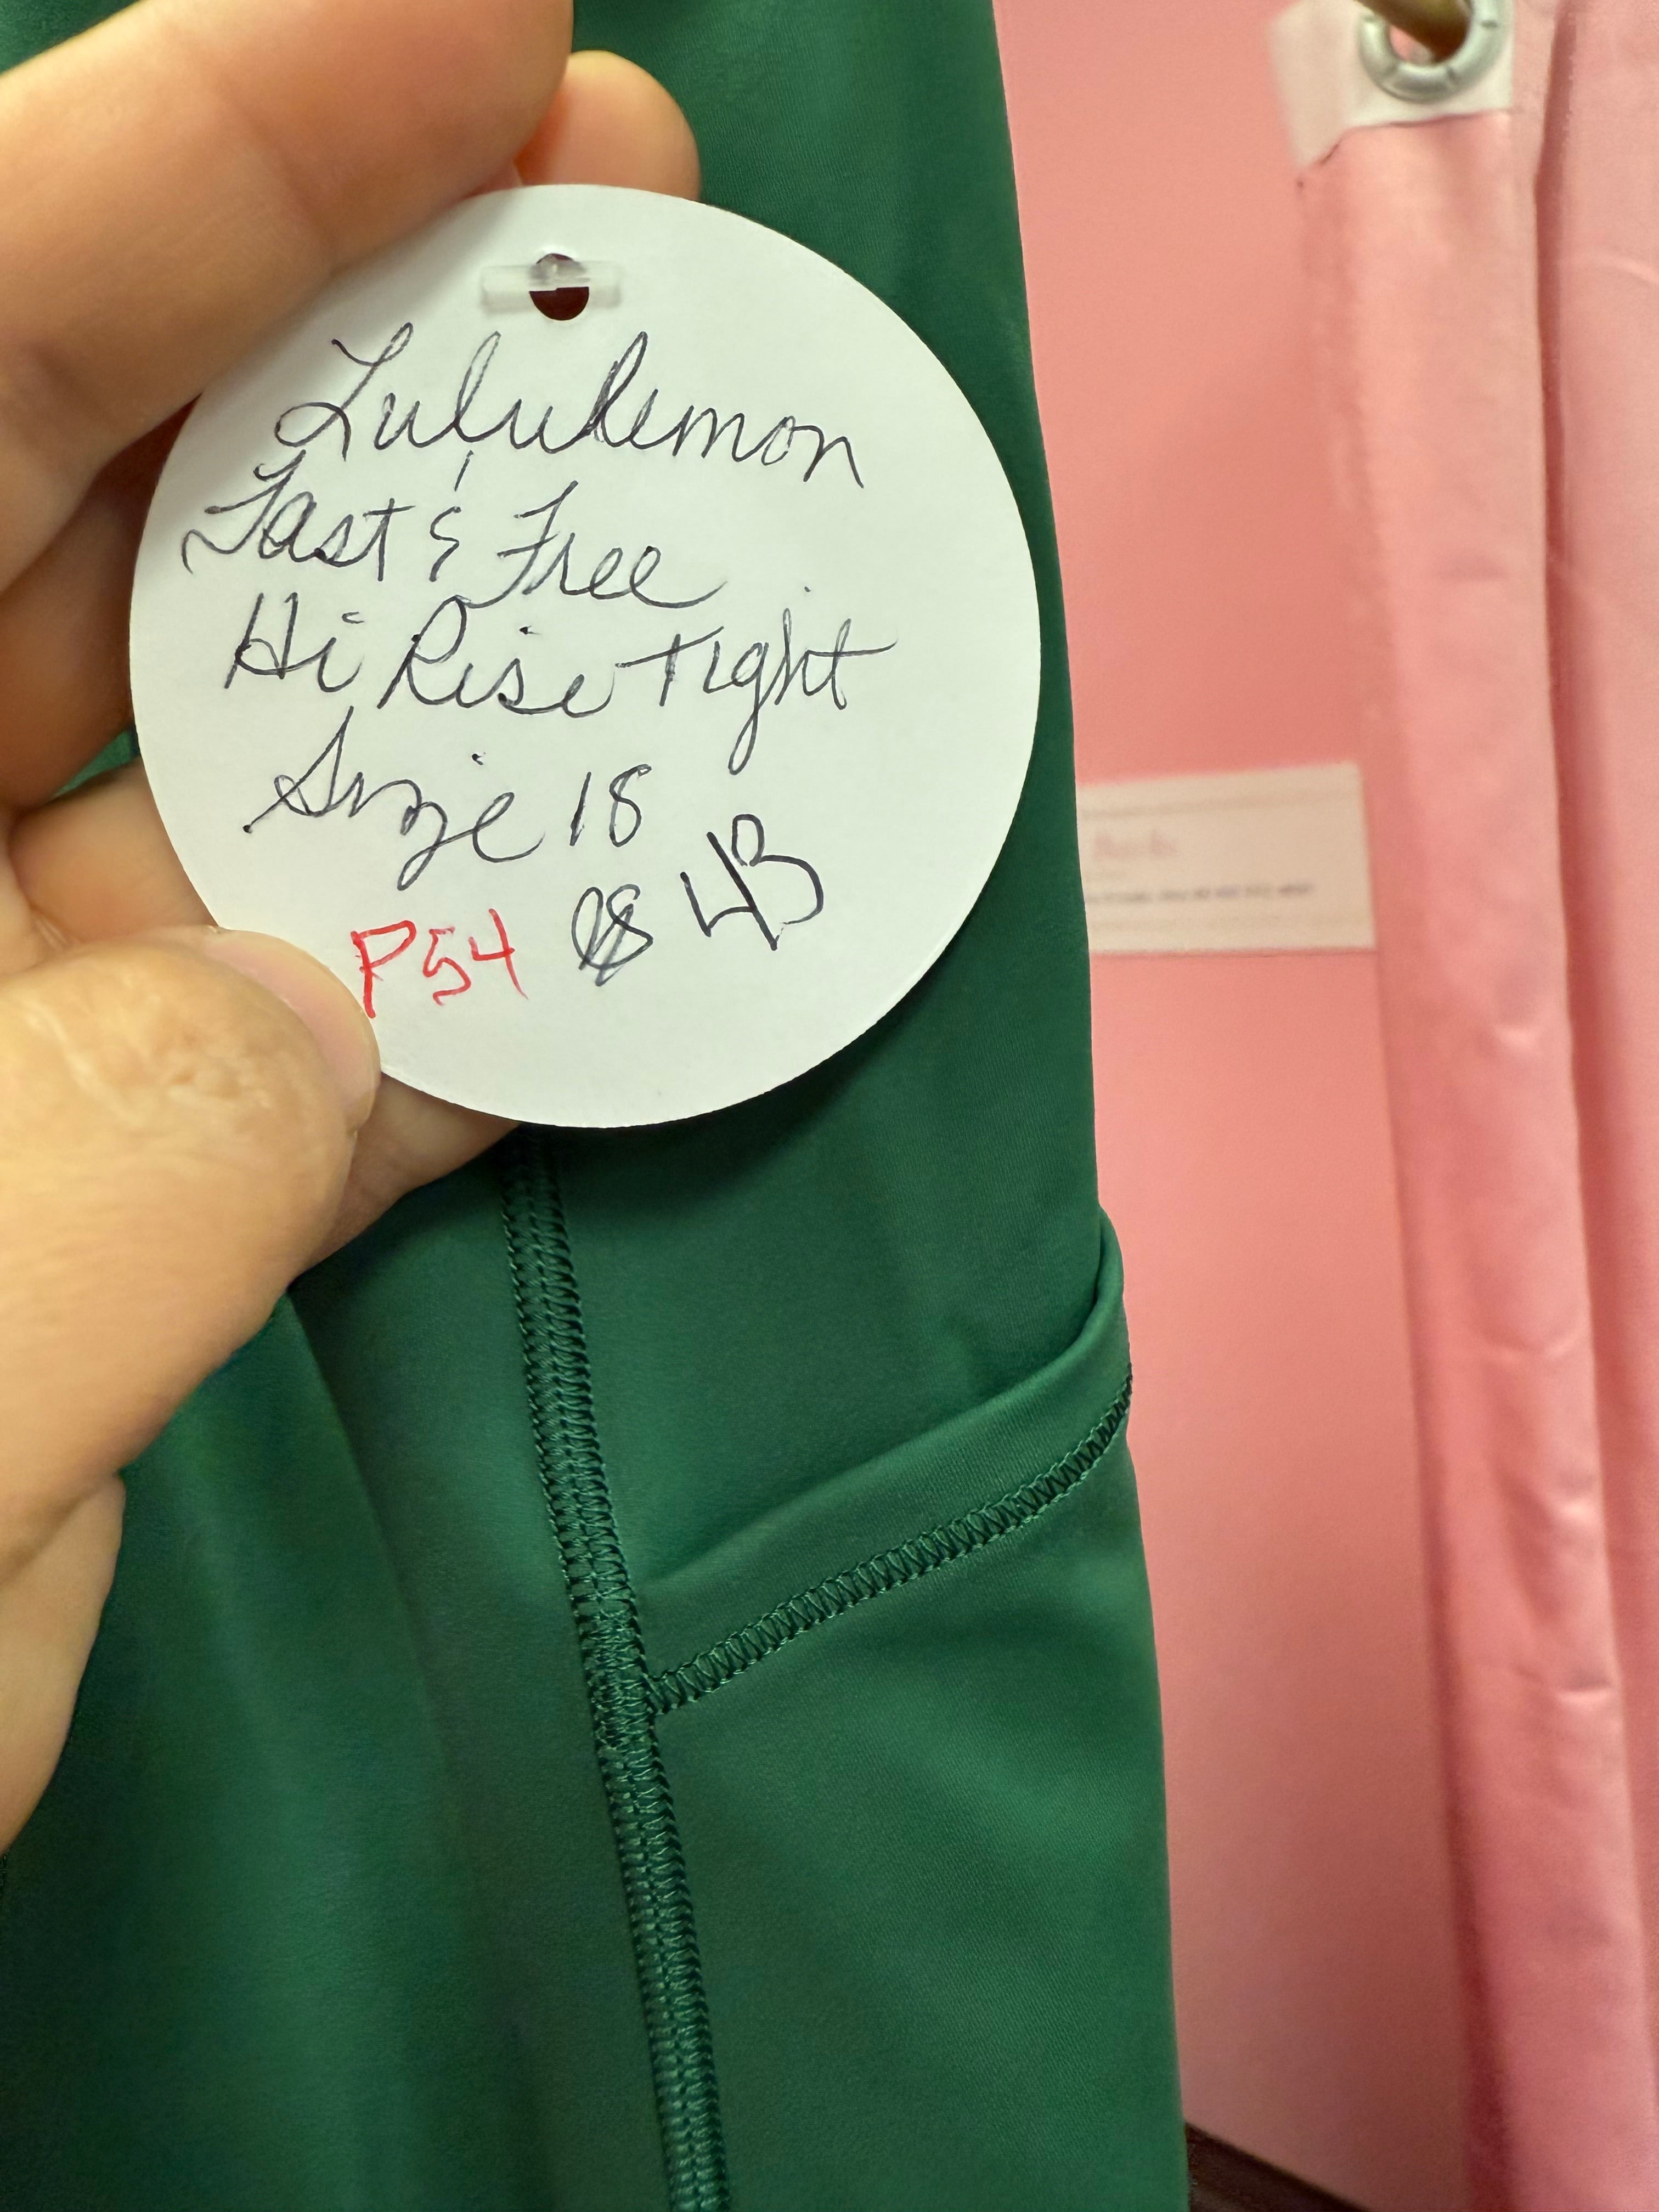 Lululemon
Fast & Free
Hi Rise Tight
Size 18
P54 $ 43